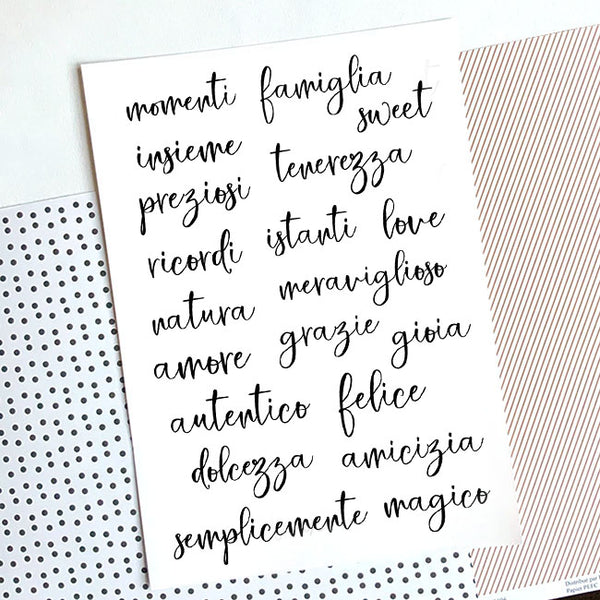 momenti famiglia
sweet
insieme tenerezza
preziosi
ricordi istanti love
natura meraviglioso
amore grazie gioia
autentico felice
dolcezza amicizia
semplicemente magico